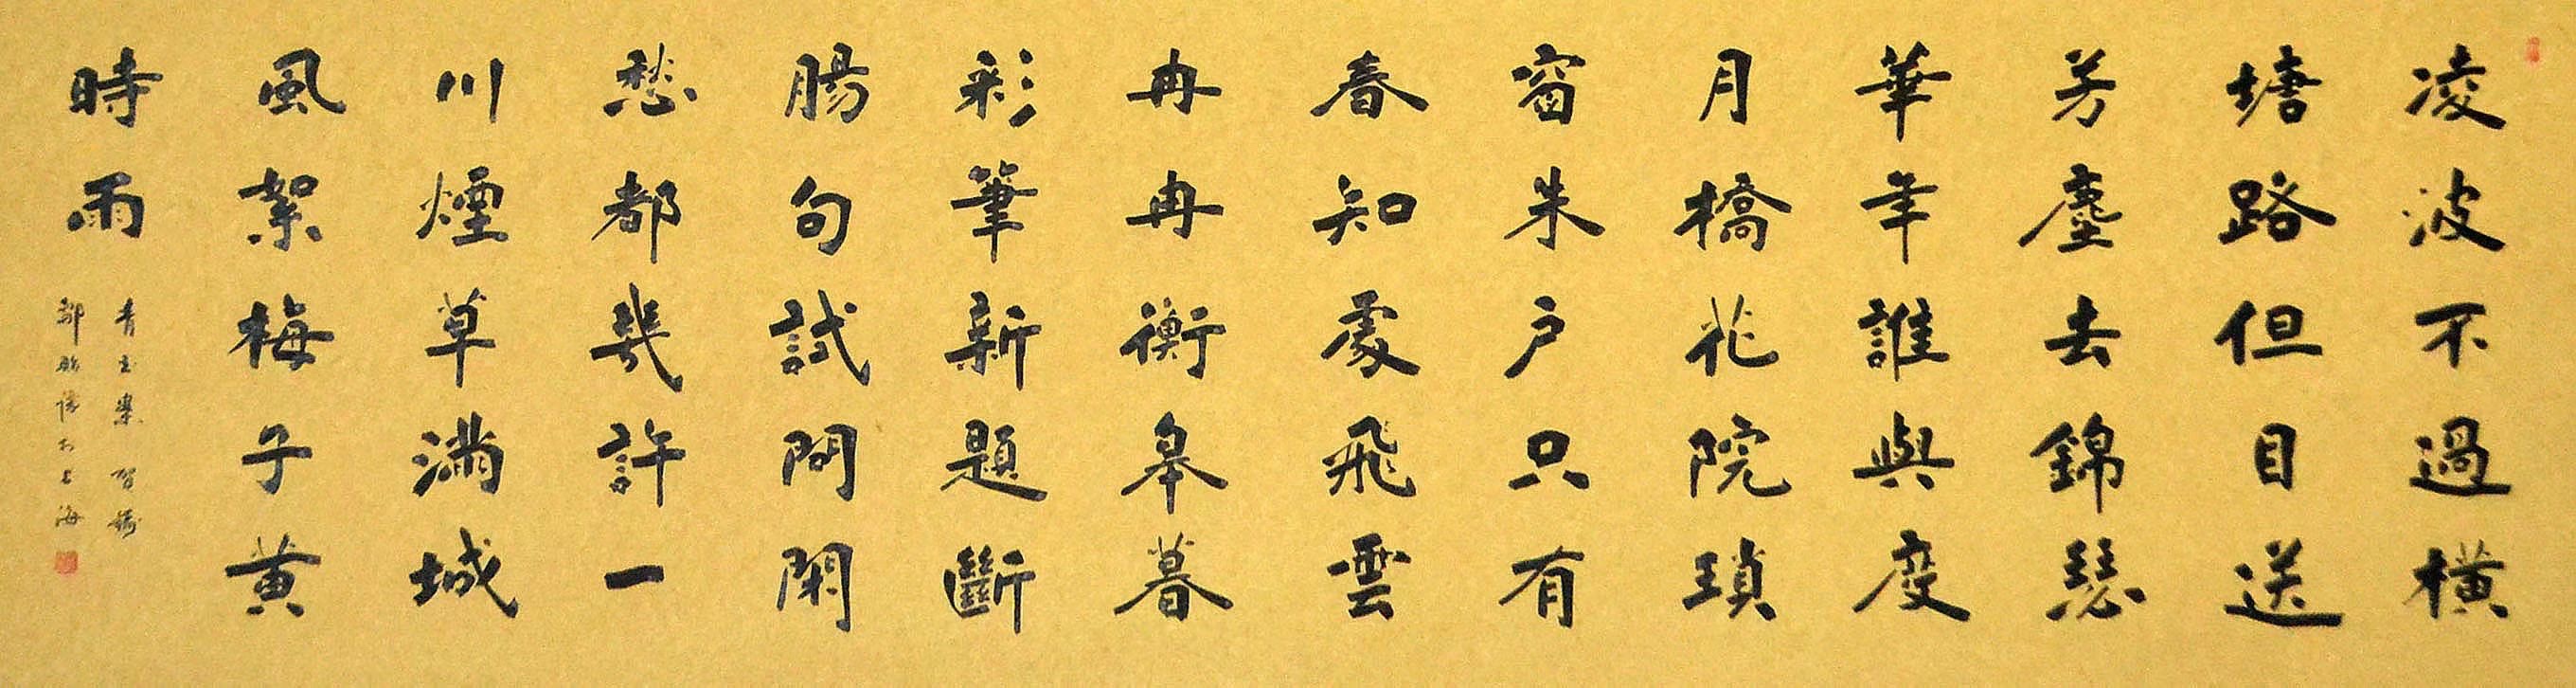 凌波不過橫
塘路但目送
芳塵去錦瑟
華年誰與度
月橋花院瑣
窗朱户只有
春知處飛雲
冉冉蘅皋暮
彩筆新題斷
腸句試問閑
愁都幾許一
川煙草滿城
風絮梅子黃
時雨
青玉案 賀鑄
於上海